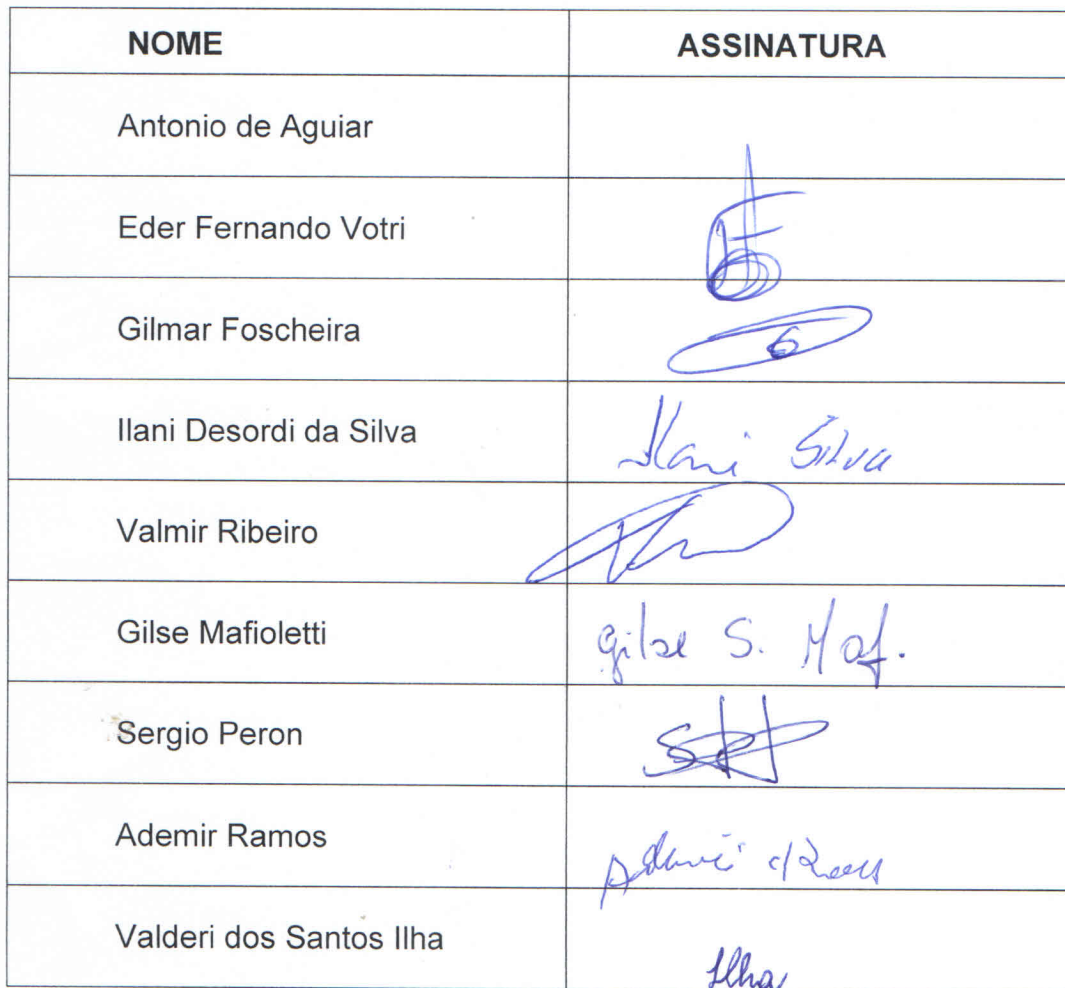 NOME ASSINATURA
Antonio de Aguiar
Eder Fernando Votri
Gilmar Foscheira
Ilani Desordi da Silva Ilani Silva
Valmir Ribeiro
Gilse Mafioletti Gilse S. Maf.
Sergio Peron
Ademir Ramos
Valderi dos Santos Ilha Ilha